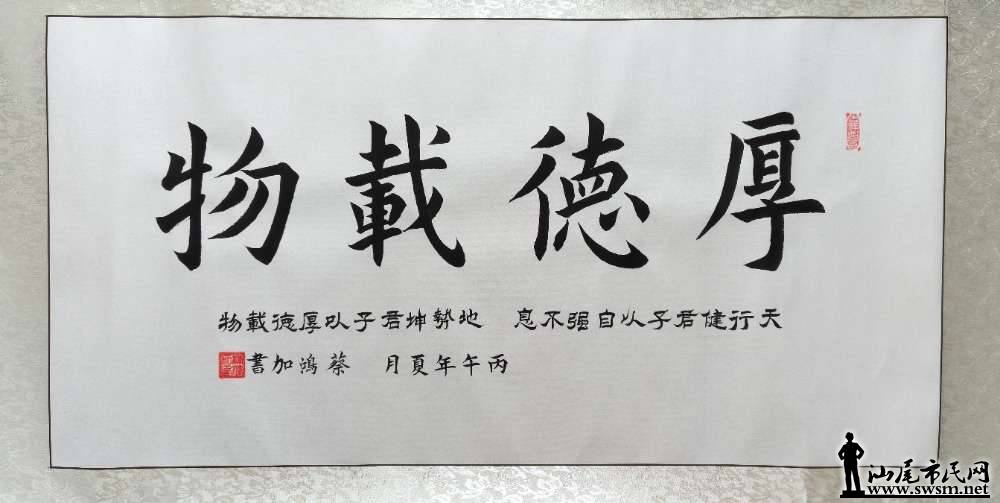 厚德載物
天行健君子以自强不息 地勢坤君子以厚德載物
丙午年夏月 蔡鴻加書
汕尾市民网
www.swsm.net